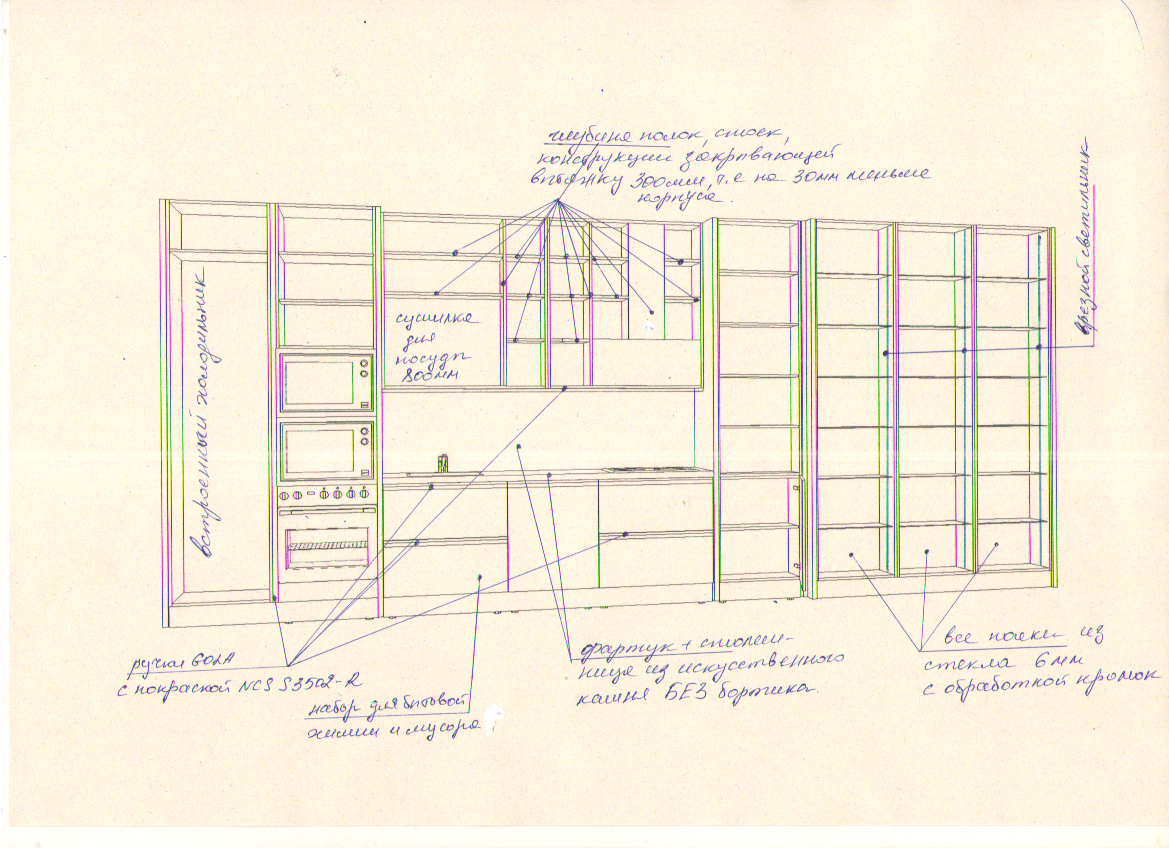 глубина полок, стоек,
конструкции закрывающей
вытяжку 300мм, т.е на 30мм меньше
корпуса.
врезной светильник
встроенный холодильник
сушилка
для
посуды
800мм
ручки GOLA
с покраской NCS S3502-R
набор для бытовой
химии и мусора
фартук + столеш-
ница из искусственного
камня БЕЗ бортика.
все полки из
стекла 6мм
с обработкой кромок